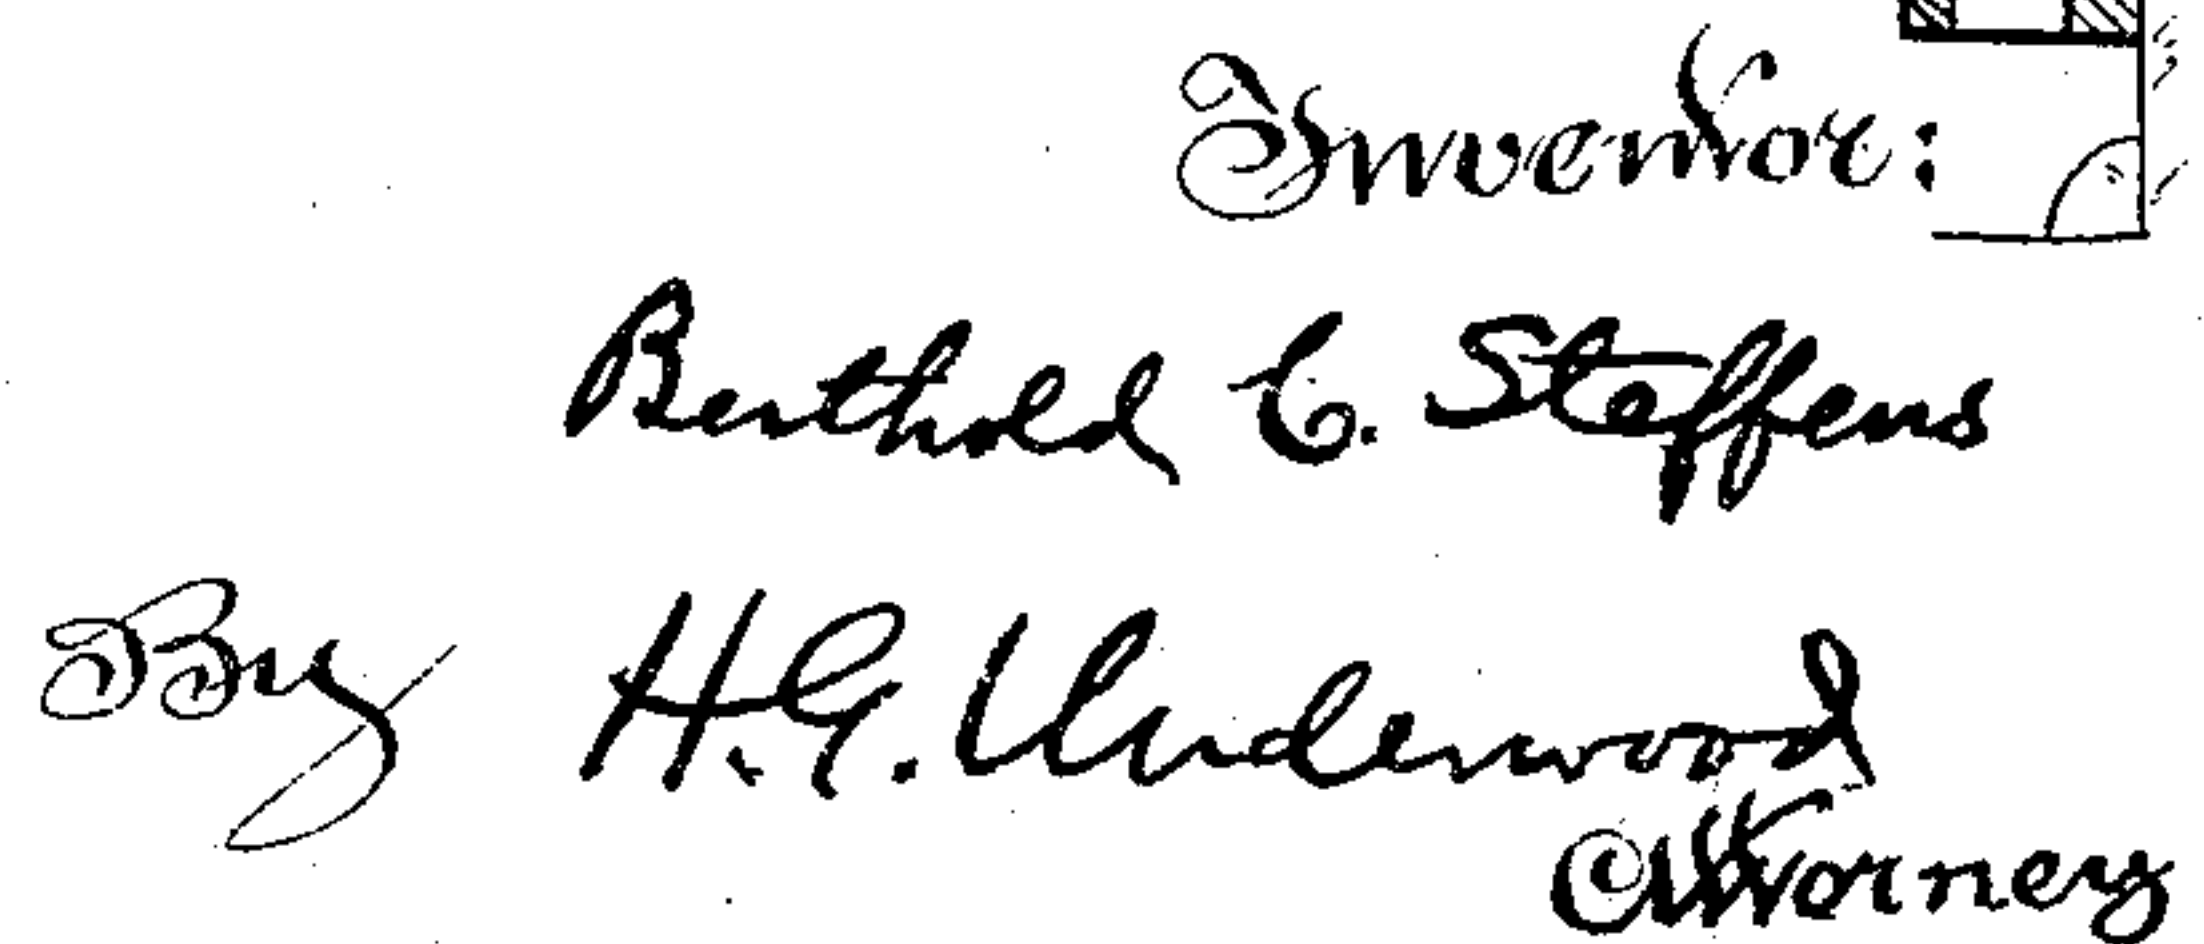 Inventor:
Berthold C. Steffens
By H. G. Underwood
Attorney